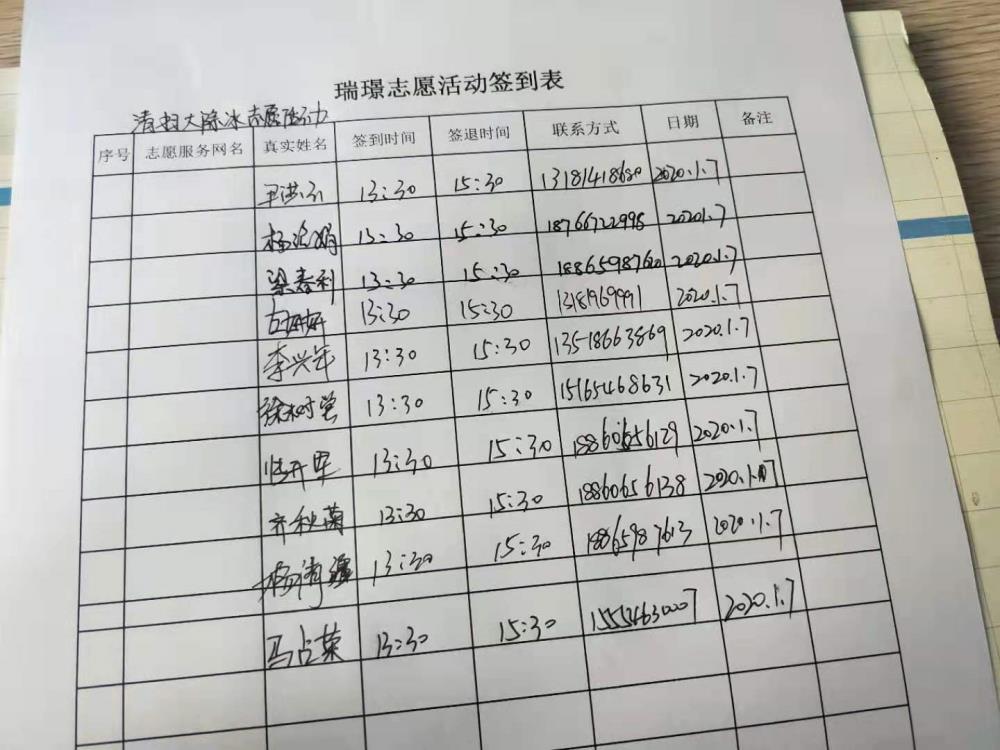 瑞璟志愿活动签到表
清扫大除冰志愿活动
序号 志愿服务网名 真实姓名 签到时间 签退时间 联系方式 日期 备注
13:30 15:30 13181418680 2020.1.7
13:30 15:30 18766722998 2020.1.7
梁春利 13:30 15:30 18865987600 2020.1.7
13:30 15:30 1318969991 2020.1.7
李兴年 13:30 15:30 13518663869 2020.1.7
徐树堂 13:30 15:30 15165468631 2020.1.7
13:30 15:30 18860656129 2020.1.7
齐秋菊 13:30 15:30 18860656138 2020.1.7
13:30 15:30 18865987613 2020.1.7
马占荣 13:30 15:30 15554630007 2020.1.7